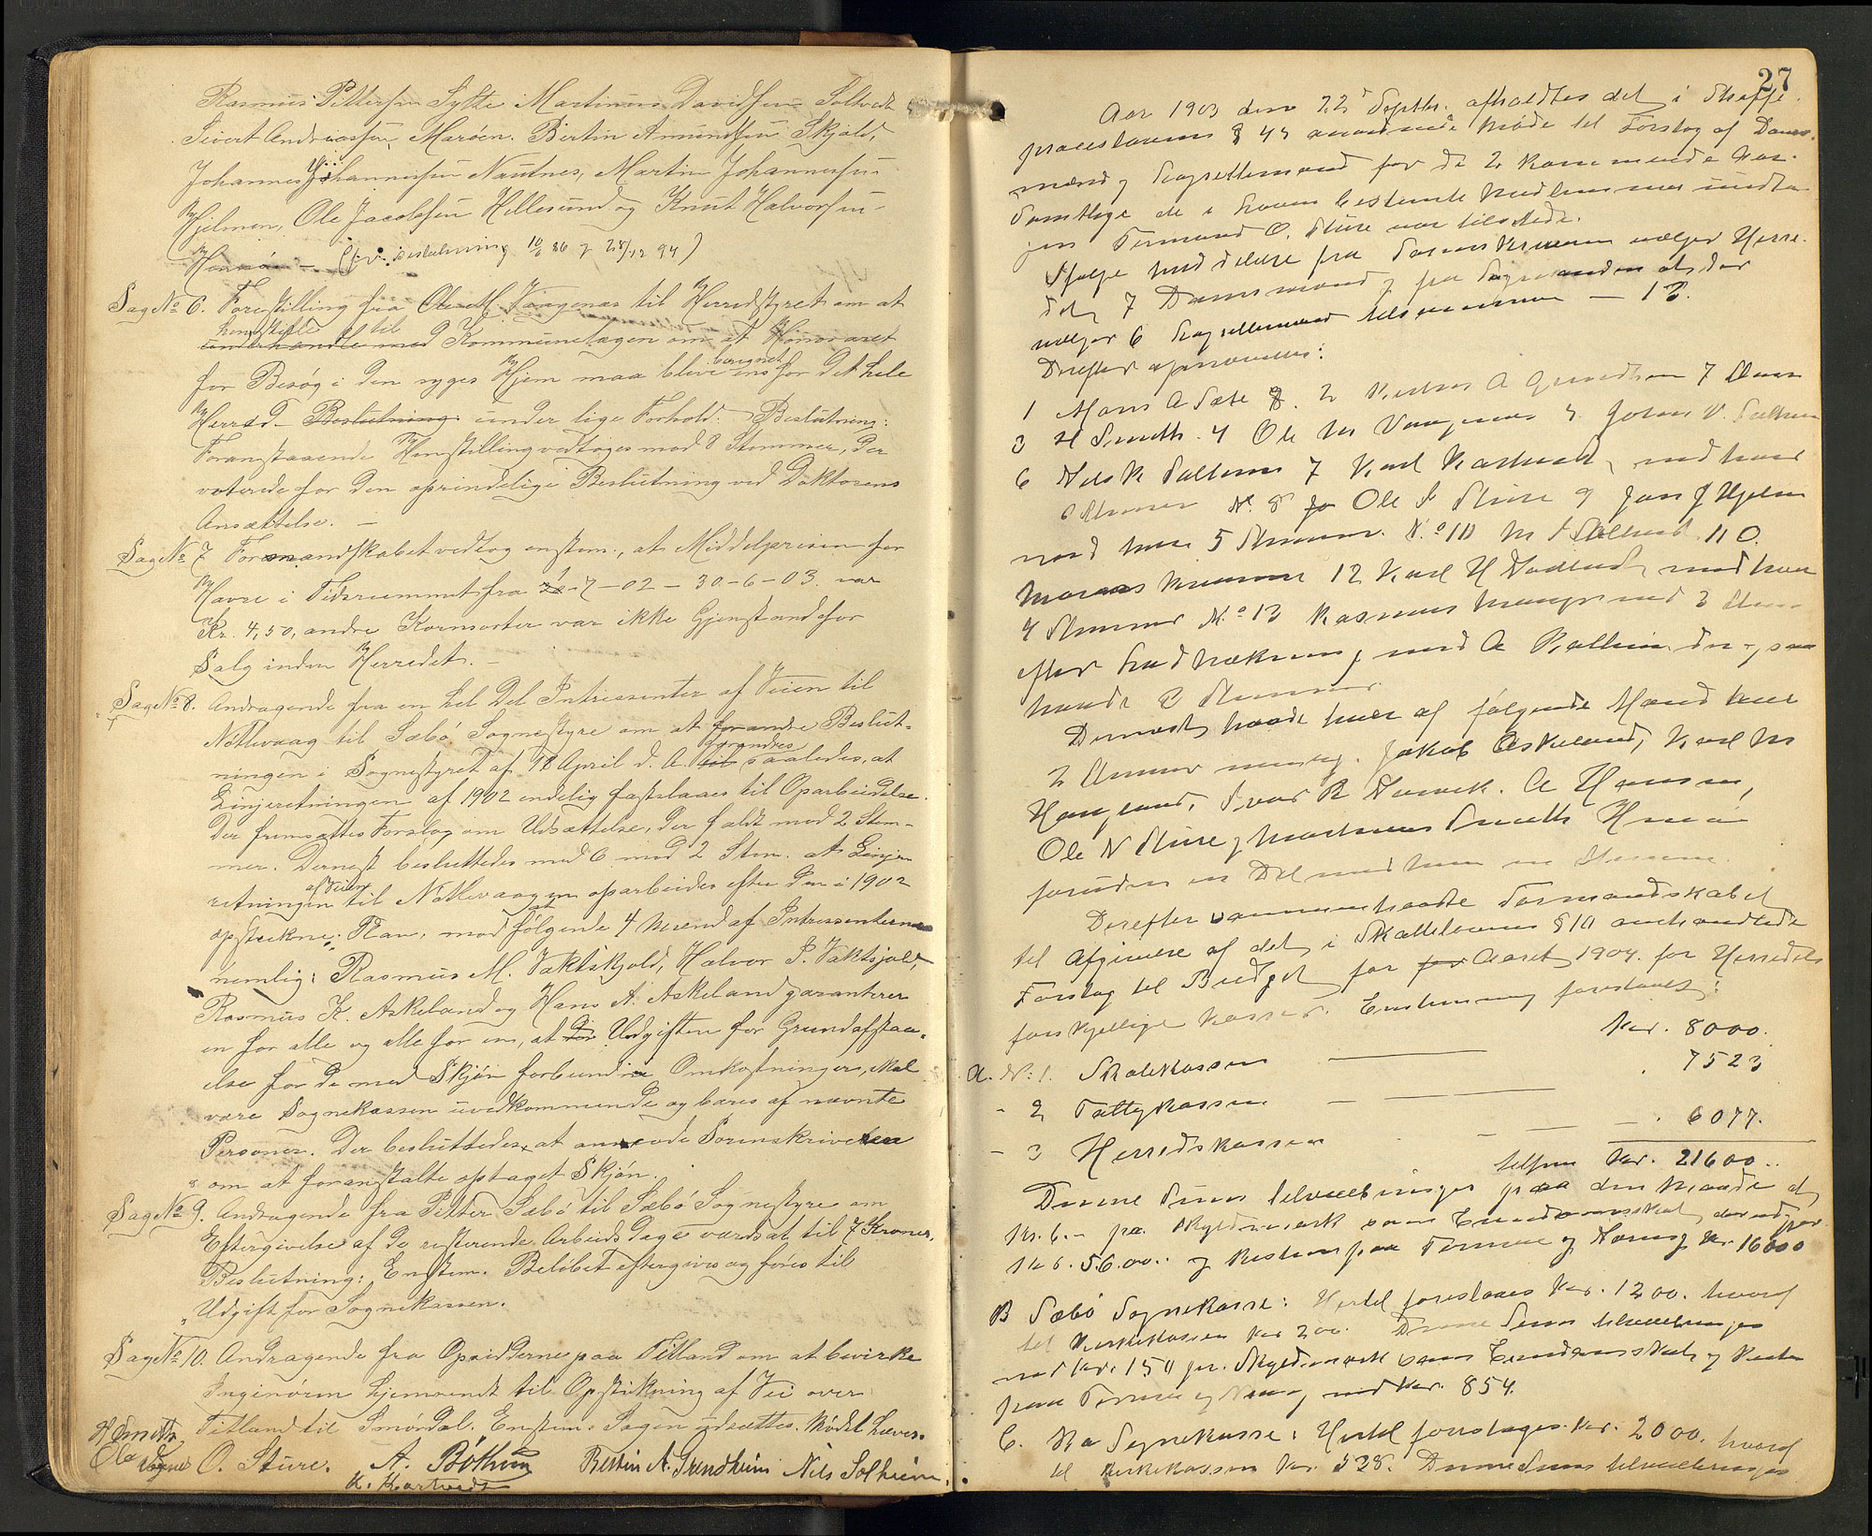 Rasmus Pettersen Syltø Martinus Davidsen Soltvedt
Sivert Andreassen Marøen. Bertin Amundsen Skjold,
Johannes Johannessen Nautnes, Martin Johannessen
Hjelmen, Ole Jacobsen Hillesund og Knut Halvorsen
(jv: Beslutning 10/6 86 & 28/12 94)
Sag No 6. Forestilling fra Ole M. Vaagenæs til Herredstyret om at
henstille til
underhandle med Kommunelægen om at Honoraret
for Besøg i den syges Hjem maa blive beregnet ens for det hele
Herred. Beslutning under lige Forhold. Beslutning:
Foranstaaende Henstilling vedtoges mod 8 Stemmer, der
voterede for den oprindelige Beslutning ved Doktorens
Ansættelse. —
Sag No 7. Formandskabet vedtog enstem., at Middelprisen for
Havre i Tidsrummet fra 1-7-02 - 30-6-03. var
Kr. 4,50, andre Kornsorter var ikke Gjenstand for
Salg inden Herredet. —
Sag No 8. Andragende fra en hel Del Intressenter af Veien til
Nøtlevaag til Sæbø Sognestyre om at forandre Beslut-
ningen i Sognestyret af 18 April d. A. forandres saaledes, at
Linjeretningen af 1902 endelig fastslaaes til Oparbeidelse.
Der fremsattes Forslag om Udsættelse, der faldt mod 2 Stem-
mer. Dernæst besluttedes med 6 mod 2 Stem. at Linje-
retningen af Veien til Nøtlevaagen oparbeides efter den i 1902
opstukne Plan, mod at følgende 4 Mænd af Intressenterne
nemlig: Rasmus M. Vaktskjold, Halvor J. Vaktsjold,
Rasmus K. Askeland og Hans A. Askeland garanterer
en for alle og alle for en, at Udgiften for Grundafstaa-
else for de med Skjøn forbundne Omkostninger, skal
være Sognekassen uvedkommende og bæres af nævnte
Personer. Der besluttedes, at anmode Sorenskriveren
om at foranstalte optaget Skjøn.
Sag No 9. Andragende fra Petter Sæbø til Sæbø Sognestyre om
Eftergivelse af de resterende Arbeids Dage værdsat til 7 Kroner.
Beslutning: Enstem. Beløbet eftergives og føres til
Udgift for Sognekassen.
Sag No 10. Andragende fra Opsidderne paa Titland om at bevirke
Ingeniøren hjemsendt til Opstikning af Vei over
Titland til Smørdal. Enstem. Sagen udsættes. Mødet hævet.
H Smith
Ole Vågenes O. Sture. A. Bøthun Bertin A. Grendheim Nils Solheim.
K. Kartveit
27
Aar 1903 den 22 Septbr. afholdtes det i Straffe
proceslovens § 43 anordnede Møde til Forslag af Doms-
mænd og Lagrettemænd for de 2 kommende Aar.
Samtlige de i Loven bestemte Medlemmer undta-
gen Formand O. Sture var tilstede.
Ifølge Meddelelse fra Sorenskriveren vælger Herre-
det 7 Domsmænd og fra Lagmanden at der
vælges 6 Lagrettemænd tilsammen — 13.
Derefter opnævntes:
1 Mons A Sæbø 2 7 Stem
3 H Smith. 4 Ole M Vaagenes 5
6 Nils K Solheim 7 Karl Kartveit, med hver
6 Stemmer No 8 Ole J Sture 9 Jens J Hjelmen
med hver 5 Stemmer. No 10
12 Karl H med hver
4 Stemmer No 13 Rasmus med 3 Stem-
efter Lodtrækning med A der og saa
havde 3 Stemmer.
Dernæst havde hver af følgende Mænd kun
2 Stemmer nemlig. Jakob Askeland, Karl M
Haugland, A Hansen,
Ole N Sture og Martinus Smith
foruden en Del med kun en Stemme.
Derefter sammentraadte Formandskabet
til Afgivelse af det i Skatteloven § 10 omhandlede
Forslag til Budget for Aaret 1904. for Herredets
forskjellige Kasser. Enstemmig foreslaaes:
A. No 1. Skolekassen — Kr. 8000.
- 2 Fattigkassen — . 7523
- 3 Herredskassen — . 6077.
tilsam Kr. 21600..
Denne Sum tilveiebringes paa den Maade at
Kr. 6.- pr. Skyldmark som Eiendomsskat, der udgjør
Kr. 5600.. og Resten paa Formue og Næring Kr. 16000
B Sæbø Sognekasse: Hertil foreslaaes Kr. 1200. hvoraf
til Kirkekassen Kr 200. Denne Sum tilveiebringes
med Kr. 1.50 pr. Skyldmark som Eiendomsskat og Resten
paa Formue og Næring med Kr. 854.
C. Bø Sognekasse: Hertil foreslaaes Kr. 2000. hvoraf
til Kirkekassen Kr. 538. Denne Sum tilveiebringes